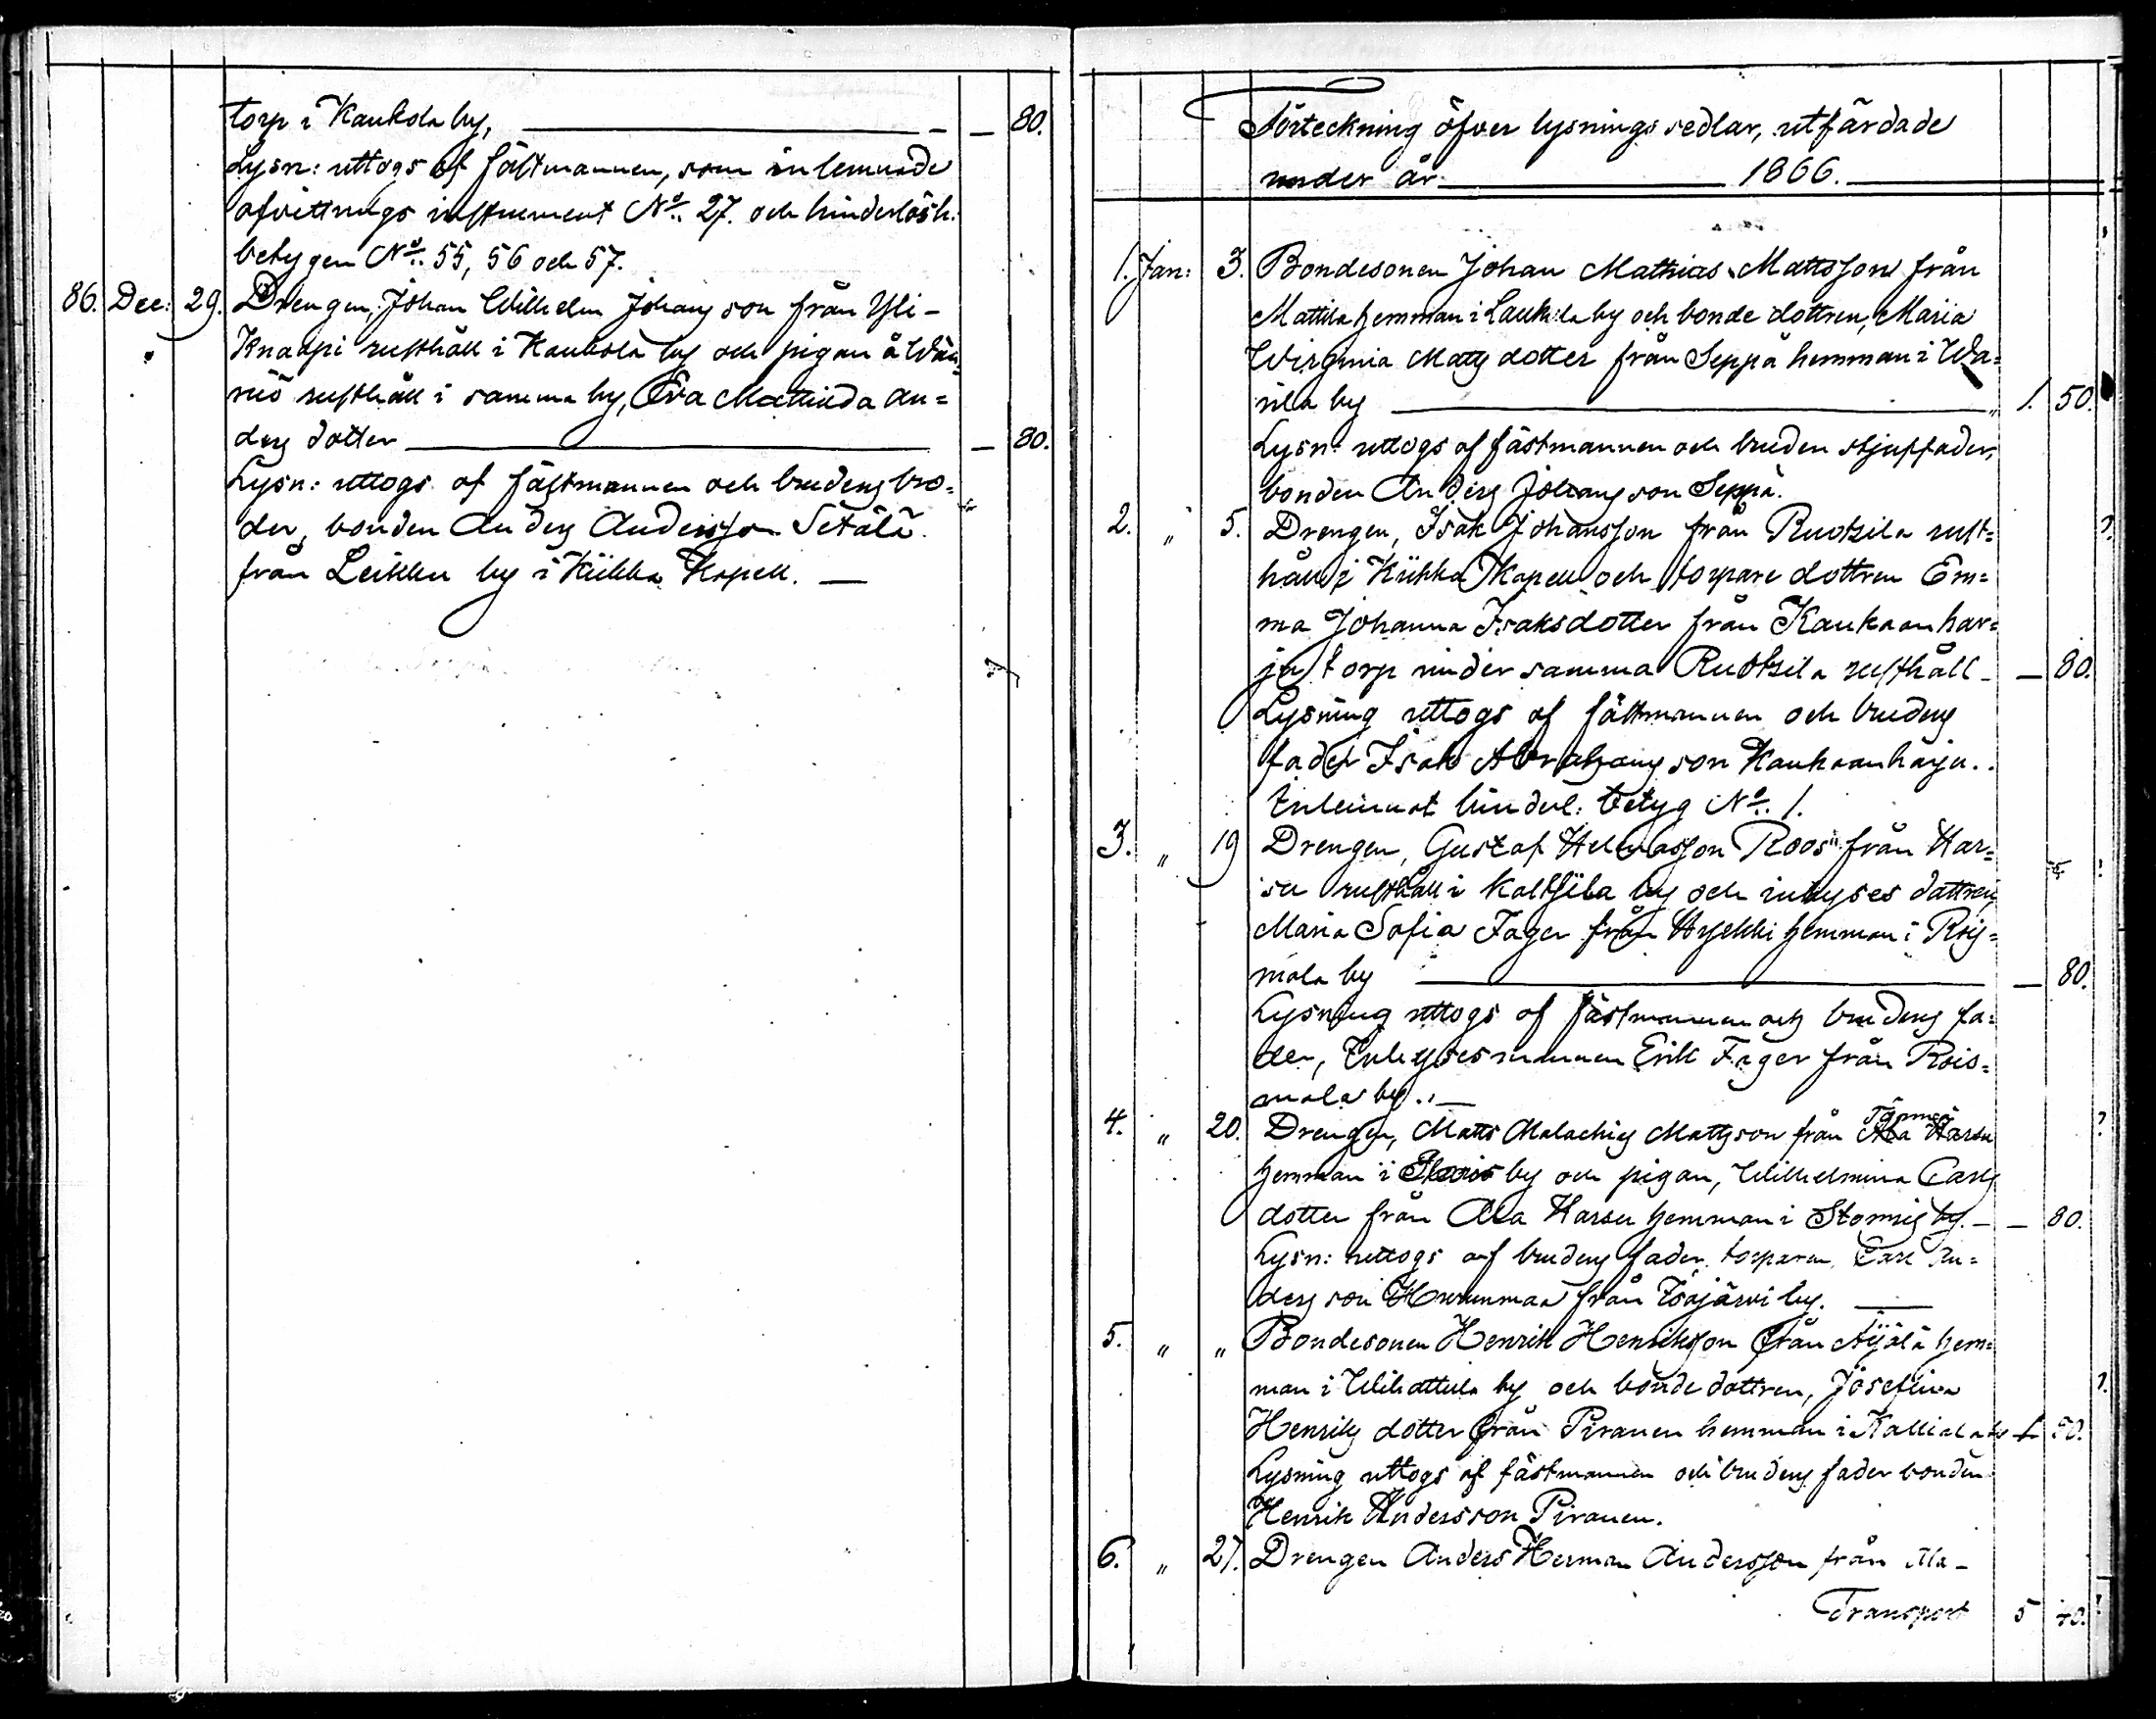 torp i Kaukola by, — — 80.
Lysn: uttogs af fästmannen, som inlemnade
afvittrings instrument No. 27. och hinderlösh.
betygen No. 55, 56 och 57.
86. Dec: 29. Drengen, Johan Wilhelm Johansson från Yli-
Knaapi rusthåll i Kaukola by och pigan å Wäi-
niö rusthåll i samma by, Eva Mathilda An=
ders dotter — — 80.
Lysn: uttogs af fästmannen och brudens bro=
der, bonden Anders Andersson Setälä
från Leikku by i Kiikka Kapell. —
Förteckning öfver lysningssedlar, utfärdade
under år 1866.
1. Jan: 3. Bondesonen Johan Mathias Mattsson från
Mattila hemman i Laukula by och bonde dottren, Maria
Wirginia Matts dotter från Seppä hemman i Wa=
nila by — 1. 50.
Lysn: uttogs af fästmannen och bruden stjuffader,
bonden Anders Johansson Seppä.
2. " 5. Drengen, Isak Johansson från Ruotsila rust=
håll i Kiikka Kapell och torpare dottren Em=
ma Johanna Isaksdotter från Kaukaanhar=
ju torp under samma Ruotsila rusthåll — — 80.
Lysning uttogs af fästmannen och brudens
fader Isak Abrahamsson Kaukaanharju.
Inlemnat hinderl: betyg No. 1.
3. " 19 Drengen, Gustaf Roos från Kar=
su rusthåll i by och inhyses dottren,
Maria Sofia Fager från hemman i Rois=
mala by — — 80.
Lysning uttogs af fästmannen och brudens fa=
der, Inhysesmannen Erik Fager från Rois=
mala by. —
4. " 20. Drengen, Matts Malachias Mattsson från
hemman i by och pigan, Wilhelmina Carls
dotter från Ala Karsu hemman i by. — — 80.
Lysn: uttogs af brudens fader, torparen Carl An=
dersson från Isojärvi by. —
5. " " Bondesonen Henrik Henriksson från Äijälä hem=
man i Wihattula by och bonde dottren, Josefina
Henriks dotter från Piranen hemman i Kalliala by 1. 50.
Lysning uttogs af fästmannen och brudens fader bonden
Henrik Andersson Piranen.
6. " 27. Drengen Anders Herman Andersson från Ala-
Transport 5 40.